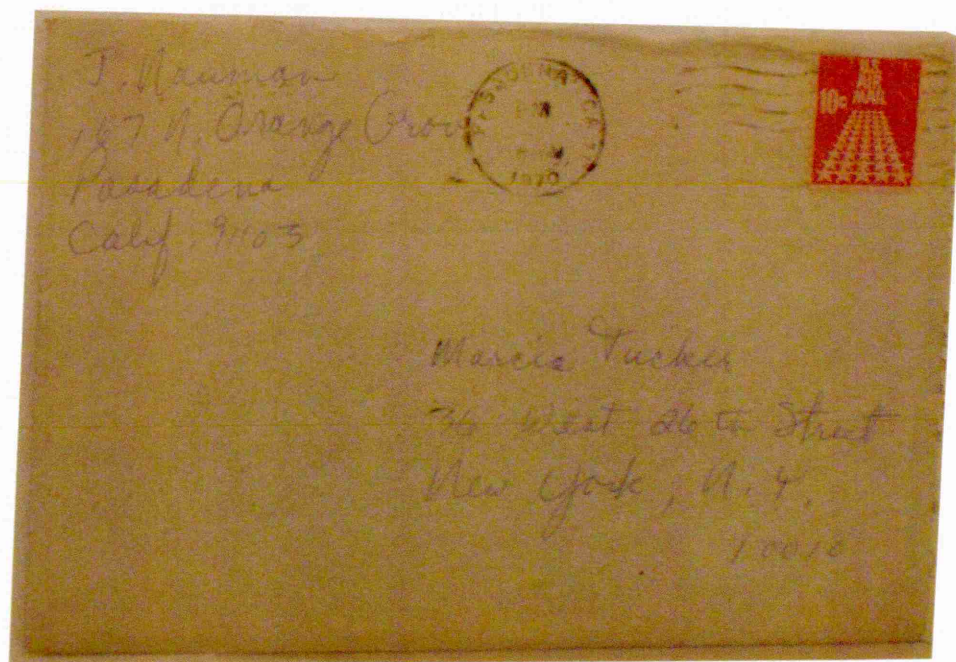 J. Nauman
167 N. Orange Grove
Pasadena
Calif. 91103
PASADENA CA
PM
1970
U.S.
AIR
MAIL
10c
Marcia Tucker
36 West 26th Street
New York, N.Y.
10010